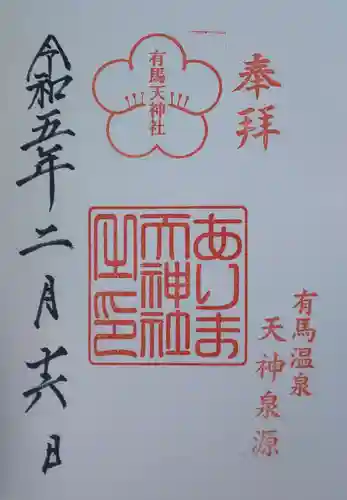 奉拝
有馬温泉
天神泉源
有馬天神社
ありま
天神社
之印
令和五年二月十六日